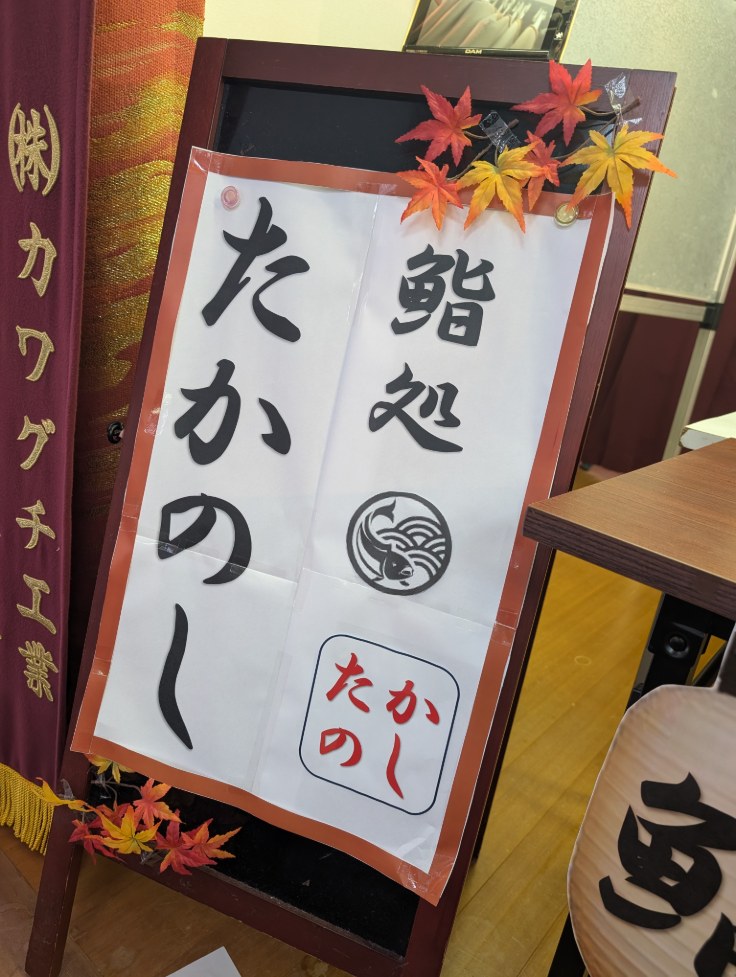 鮨処
たかのし
たか
のし
㈱カワグチ工業
DAM